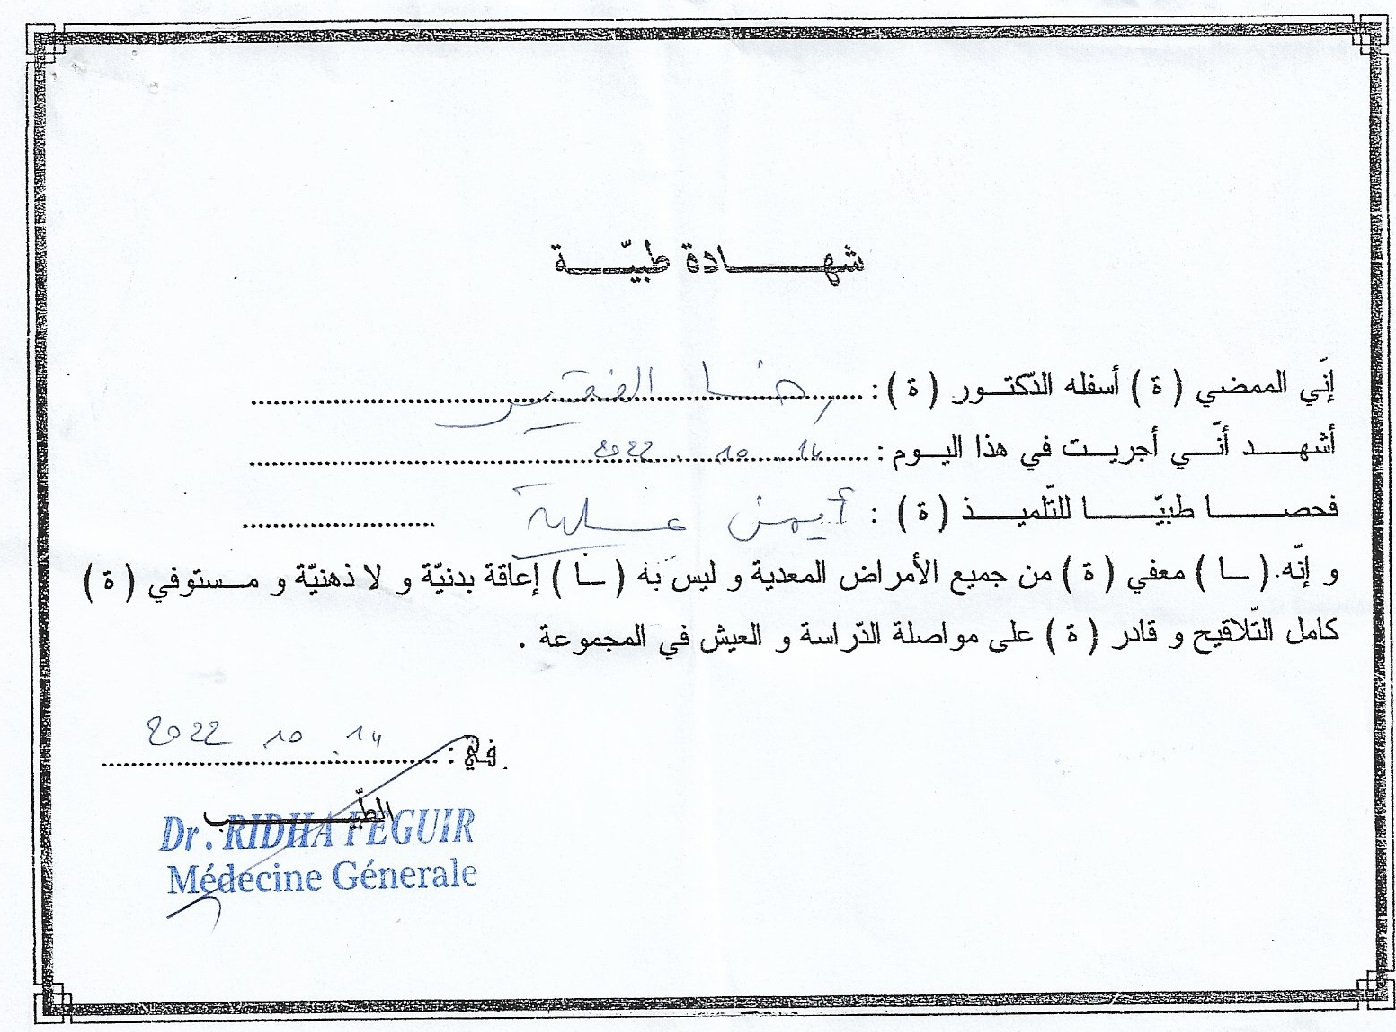 شهادة طبيّة
إنّي الممضي ( ة ) أسفله الدّكتور ( ة ) : رضا الفقير
أشهد أنّي أجريت في هذا اليوم : 14 . 10 . 2022
فحصا طبيّا للتّلميذ ( ة ) : أيمن
و إنّه ( ـا ) معفي ( ة ) من جميع الأمراض المعدية و ليس به ( ـا ) إعاقة بدنيّة و لا ذهنيّة و مستوفي ( ة )
كامل التّلاقيح و قادر ( ة ) على مواصلة الدّراسة و العيش في المجموعة .
في : 14 . 10 . 2022
الطّبيب
Dr. RIDHA FEGUIR
Médecine Génerale